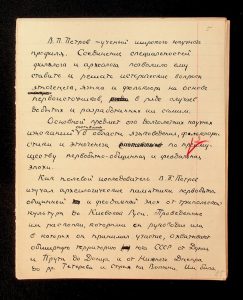 В.П. Петров ученый широкого научного
профиля. Соединение специальностей
филолога и археолога позволило ему
ставить и решать исторические вопросы
этногенеза, языка и фольклора на основе
первоисточников, в ряде случаев
добытых и разработанных им самим.
Основной предмет его
изысканий в области языковедения, фольклори-
стики и этногенеза по
ществу первобытно-общинная и феодальная
эпохи.
Как полевой исследователь В.П. Петров
изучал археологические памятники первобытно
общинной и феодальной эпох от трипольской
культуры до Киевской Руси. Проведенные
им раскопки, которыми он руководил или
в которых он принимал участие, охватывают
обширную территорию юга СССР от Днестра
и Прута до Донца и от Нижнего Днепра
до р. Тетерева и Волыни. Им были